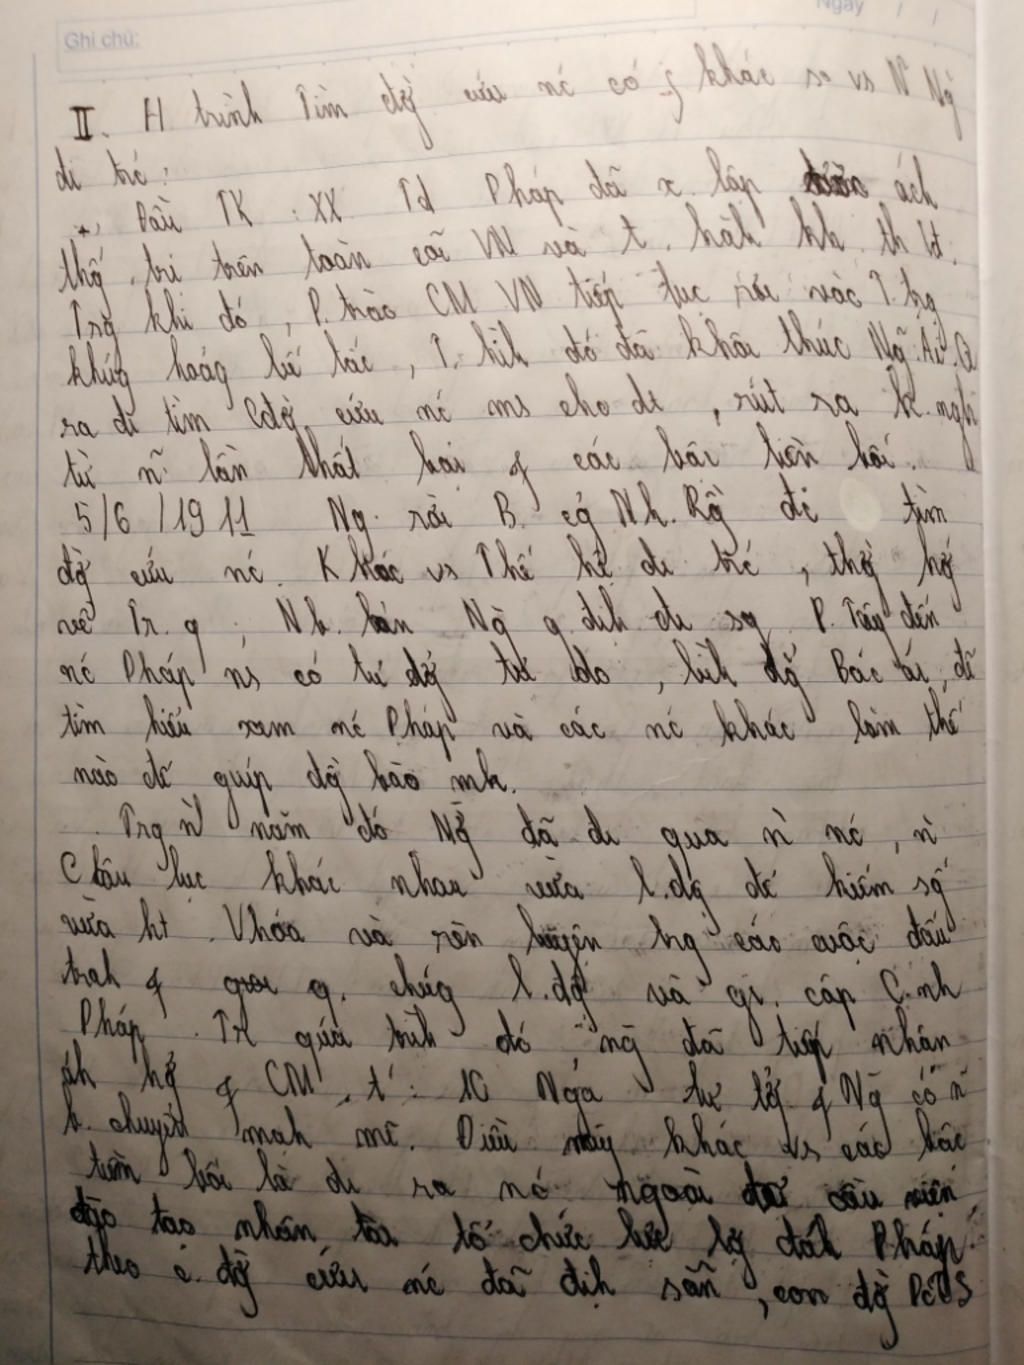 Ngày / /
Ghi chú:
II. H trình Tìm đg cứu nc có gì khác so vs N Ng
đi trc:
+, Đầu TK : XX Td Pháp đã x. lập ách
thố. trị trên toàn cõi VN và t. hàh kh. th lđ.
Trg khi đó, P. trào CM VN tiếp tục rơi vào T. trg
khủg hoảg bế tắc, T. hìh đó đã khôi thúc Ng. Ái. Q
ra đi tìm Cđg cứu nc ms cho dt, rút ra k. ngh
từ n~ lần thất bại of các bậc tiền bối.
5/6/1911 Ng. rời B. cg Nh. Rồg đi tìm
đg cứu nc. Khác vs Thế hệ đi trc, thg hg
về Tr. q, Nh. bản Ng q. địh đi sg P. Tây đến
nc Pháp ns có tư đg tự do, bìh đg Bác ái, để
tìm hiểu xem nc Pháp và các nc khác làm thế
nào để giúp đg bào mh.
Trg n~ năm đó Ng đã đi qua n` nc, n`
Châu lục khác nhau vừa l. đg để kiếm sg
vừa ht. Vhóa và rèn luyện trg các cuộc đấu
trah of giai q. chúg l. đg và gi. cấp C. nh
Pháp. Tr quá trìh đó, ng đã tiếp nhận
ảh hg of CM. t : 10 Nga tư tg of Ng có n~
b. chuyển mạh mẽ. Điều này khác vs các bậc
tiền bối là đi ra nc ngoài để cầu viện,
đào tạo nhân tài tổ chức lực lg đáh Pháp
theo c. đg cứu nc đã địh sẵn, con đg DCTS